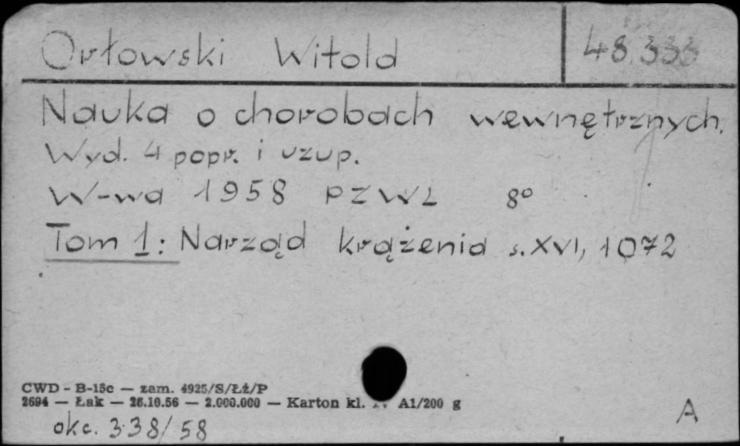 Orłowski Witold 48.333
Nauka o chorobach wewnętrznych.
Wyd. 4 popr. i uzup.
W-wa 1958 PZWL 8°
Tom 1: Narząd krążenia s. XVI, 1072
CWD - B-15c — zam. 4925/S/Łż/P
2694 — Łak — 26.10.56 — 2.000.000 — Karton kl. A1/200 g
okc. 338/58
A